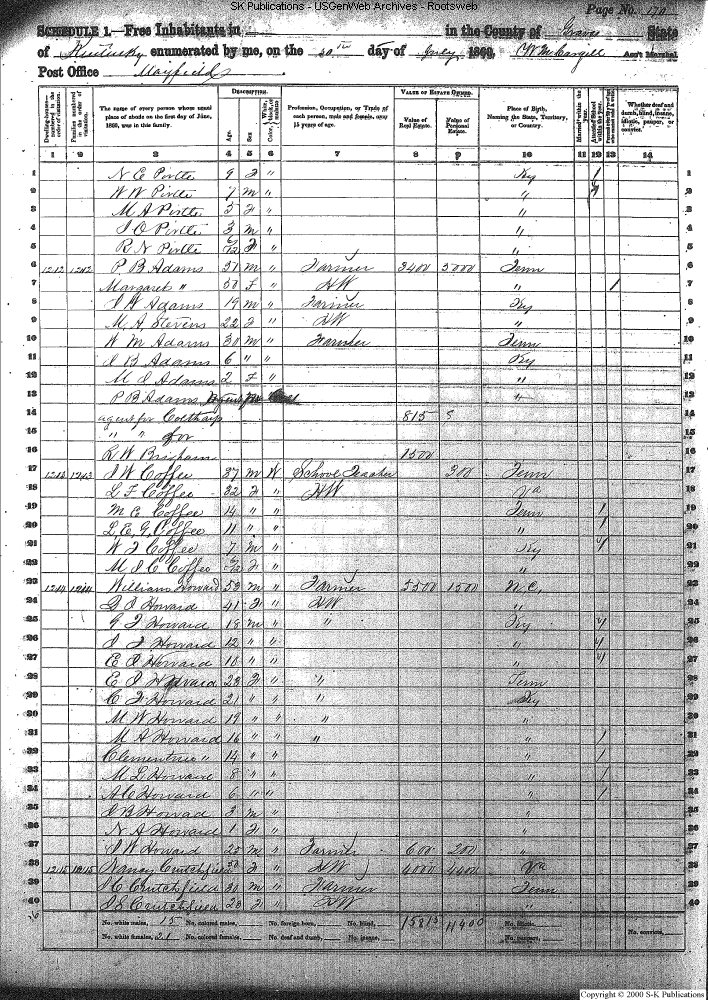 SK Publications - USGenWeb Archives - Rootsweb
Page No. 170
SCHEDULE 1.—Free Inhabitants in in the County of Graves State
of Kentucky enumerated by me, on the 30th day of July 1860. Ass't Marshal
Post Office Mayfield
Dwelling-houses—numbered in the order of visitation.
Families numbered in the order of visitation.
The name of every person whose usual place of abode on the first day of June, 1860, was in this family.
DESCRIPTION.
Age.
Sex.
Color, White, black, or mulatto.
Profession, Occupation, or Trade of each person, male and female, over 15 years of age.
VALUE OF ESTATE OWNED.
Value of Real Estate.
Value of Personal Estate.
Place of Birth, Naming the State, Territory, or Country.
Married within the year.
Attended School within the year.
Whether deaf and dumb, blind, insane, idiotic, pauper, or convict.
1 2 3 4 5 6 7 8 9 10 11 12 13 14
1 N E Pirtle 9 F " Ky / 1
2 W W Pirtle 7 m " " 2
3 M A Pirtle 5 F " " 3
4 J O Pirtle 3 m " " 4
5 R N Pirtle F " " 5
6 1212 1202 P B Adams 51 m " Farmer 3400 5000 Tenn 6
7 Margaret " 50 F " HW " 1 7
8 J W Adams 19 m " Farmer Ky 8
9 M A Stevens 22 F " HW " 9
10 W M Adams 30 m " Farmer Tenn 10
11 J B Adams 6 " " Ky 11
12 M J Adams 2 F " " 12
13 P B Adams " 13
14 agent for Coltharp 815 14
15 " " for 15
16 R W Brigham 1500 16
17 1213 1203 J W Coffee 37 m W School Teacher 300 Tenn 17
18 L F Coffee 32 F " HW Va 18
19 M E Coffee 14 " " Tenn / 19
20 L E G Coffee 11 " " " / 20
21 W J Coffee 7 m " Ky 21
22 M J C Coffee F " " 22
23 1214 1204 William Howard 53 m " Farmer 5500 1500 N.C. 23
24 G J Howard 41 F " HW " 24
25 G T Howard 18 m " " Ky 25
26 J T Howard 12 " " " 26
27 E A Howard 10 " " " 27
28 E J Howard 23 F " " Tenn 28
29 C J Howard 21 " " " Ky 29
30 M W Howard 19 " " " " 30
31 M A Howard 16 " " " " / 31
32 Clementine " 14 " " " / 32
33 M L Howard 8 " " " / 33
34 A C Howard 6 " " " / 34
35 J B Howard 3 m " " 35
36 N A Howard 1 F " " 36
37 J W Howard 25 m " Farmer 600 200 " 37
38 1215 1215 Nancy Crutchfield 50 F " HW 4000 4400 Va 38
39 J C Crutchfield 30 m " Farmer Tenn 39
40 J S Crutchfield 23 F " HW " 40
No. white males, 15 No. colored males, No. foreign born, No. blind, 15815 11400 No. idiotic,
No. white females, 21 No. colored females, No. deaf and dumb, No. insane, No. paupers, No. convicts,
Copyright © 2000 S-K Publications